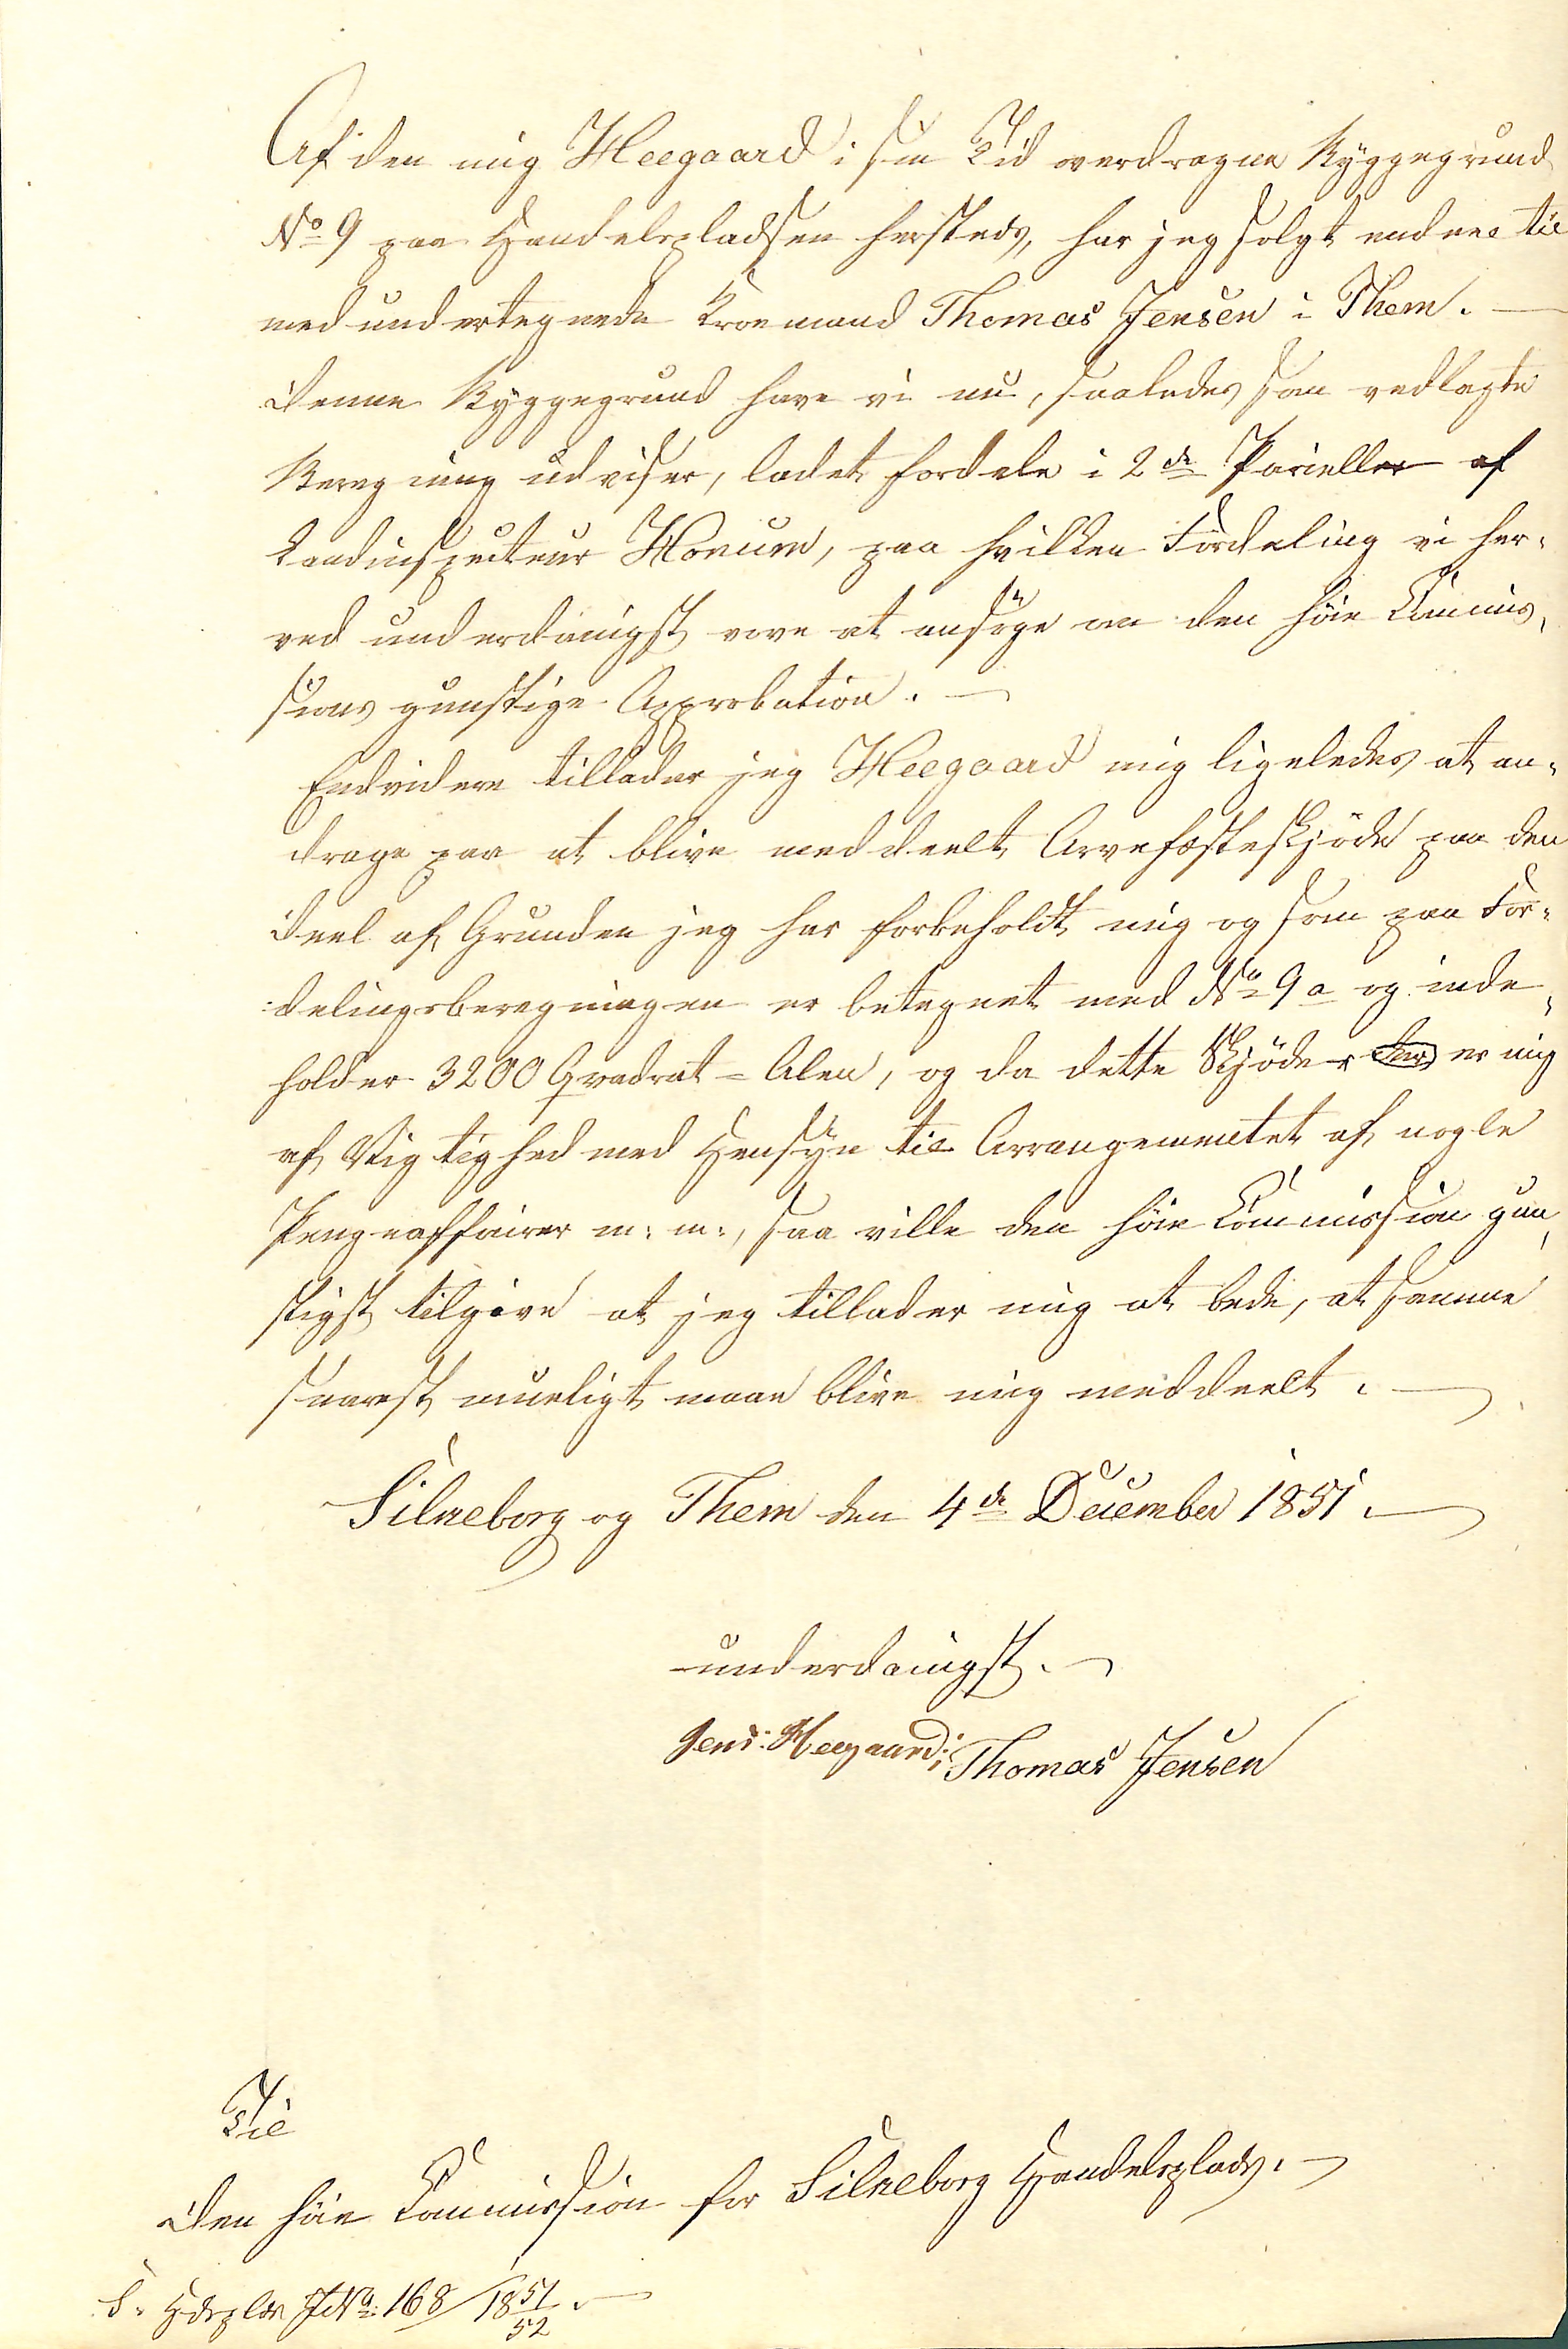 Af den mig Heegaard i sin Tid overdragne Byggegrund
No 9 paa Handelspladsen hersteds, har jeg solgt endeel til
medundertegnede Kroemand Thomas Jensen i Them. —
Denne Byggegrund have vi nu, saaledes som vedlagte
Beregning udviser, ladet fordele i 2de Parceller af
Landinspecteur Honum, paa hvilken Fordeling vi her-
ved underdanigst vove at ansøge om den høie Commis-
sions gunstige Approbation. —
Endvidere tillader jeg Heegaard mig ligeledes at an-
drage paa at blive meddeelt Arvefæsteskjøde paa den
Deel af Grunden jeg har forbeholdt mig og som paa For-
delingsberegningen er betegnet med No 9a og inde-
holder 3200 Qvadrat-Alen, og da dette Skjøde er mig
af Vigtighed med Hensyn til Arrangementet af nogle
Pengeaffairer m: m:, saa ville den høie Commission gun-
stigst tilgive at jeg tillader mig at bede, at samme
snarest mueligt maae blive mig meddeelt. —
Silkeborg og Them den 4de December 1851. —
underdanigst. —
Jens: Heegaard; Thomas Jensen
Til
Den høie Commission for Silkeborg Handelsplads. —
S. Hdspls JNo: 168/1851/52. —